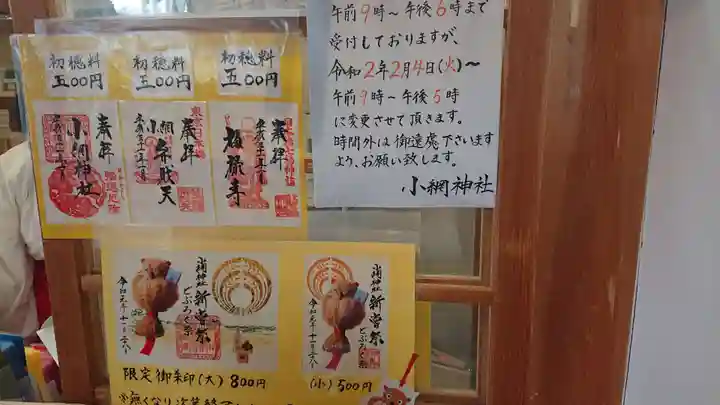 初穂料
五00円
初穂料
五00円
初穂料
五00円
奉拝
小網神社
奉拝
小網弁財天
東京日本橋
奉拝
福禄寿
午前9時～午後6時まで
受付しておりますが、
令和2年2月4日(火)～
午前9時～午後5時
に変更させて頂きます。
時間外は御遠慮下さいます
よう、お願い致します。
小網神社
小網神社
新嘗祭
どぶろく祭
令和元年十一月二八日
限定御朱印(大) 800円
小網神社
新嘗祭
どぶろく祭
令和元年十一月二八日
(小) 500円
※無くなり次第終了